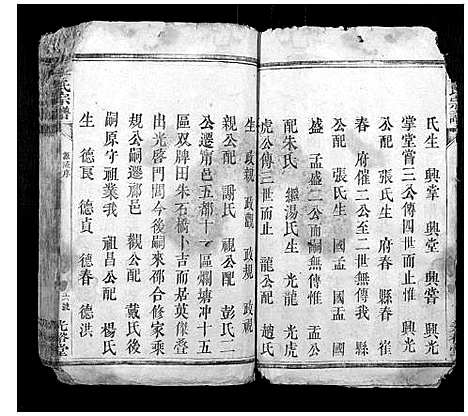 氏生 興掌 興堂 興嘗 興光
掌堂嘗三公傳四世而止 惟
公配 張氏生 府 縣春 崔
春 府催二公至二世無傳我 縣
公配 張氏生 國孟 國孟
盛 孟盛二公而嗣無傳惟 孟公
配朱氏 繼湯氏生 光龍 光虎
虎公傳三世而止 龍公配 趙氏
生 政規 政觀 政視
親公配 謝氏 視公配 彭氏二
公遷甯邑五都十一區爛塘冲十五
區双牌田朱石橋卜吉而居英傑登
出光啓門閭今後嗣來邵合修家乘
嗣公同遷邵邑 觀公配 戴氏後
嗣原守祖業我 祖昌公配 楊氏
生 德良 德貞 德春 德洪
氏宗譜
源流序